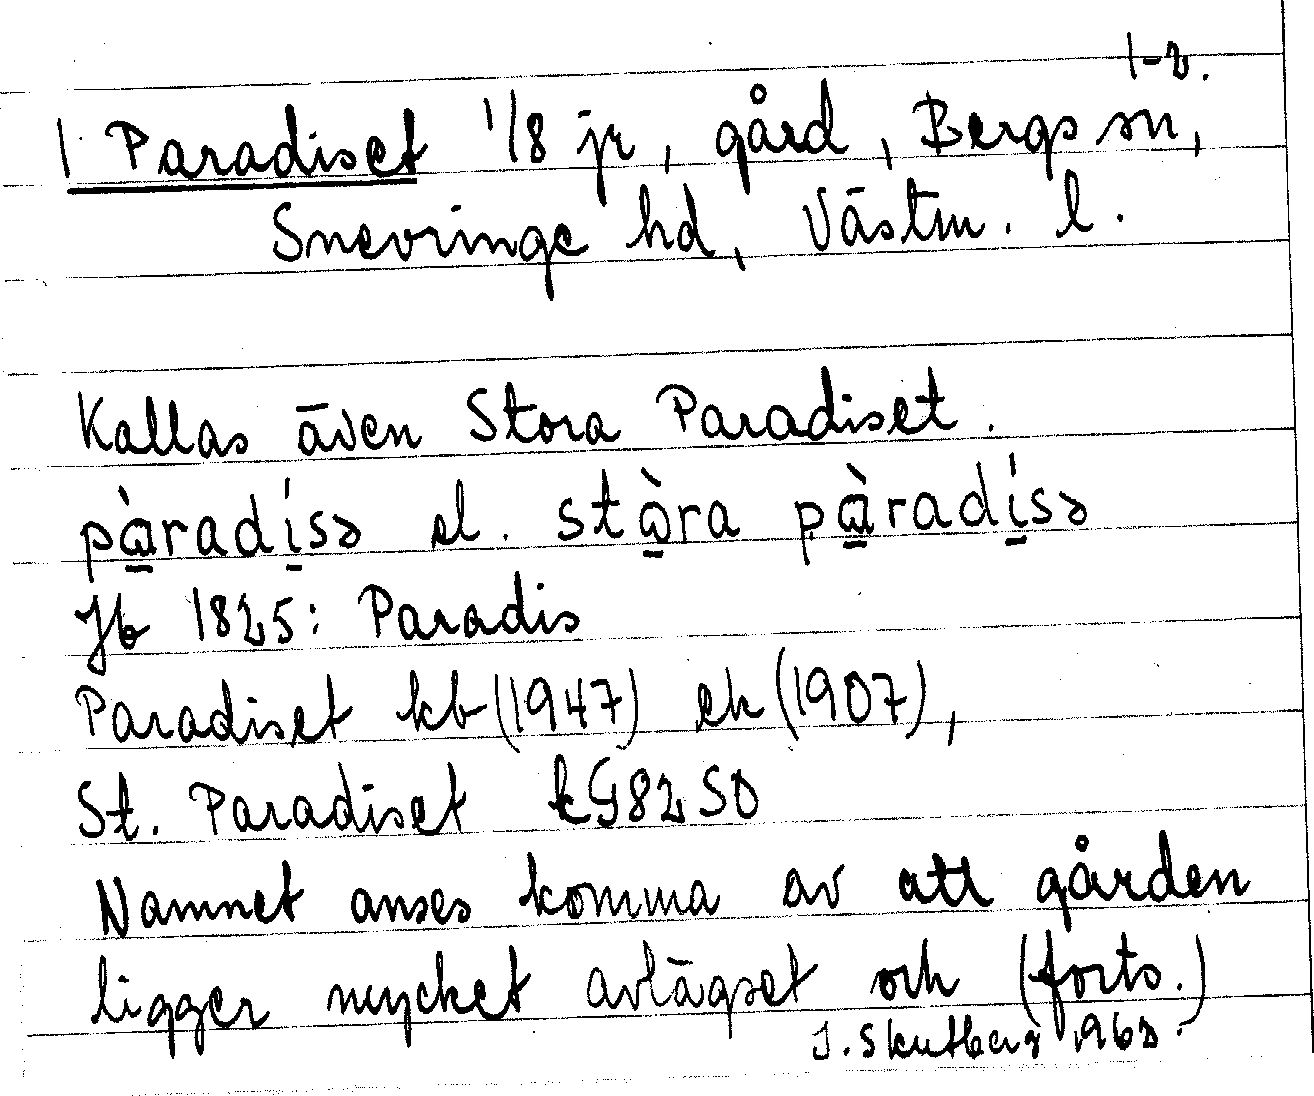 1-2.
1 Paradiset 1/8 jr, gård, Bergs sn,
Snevringe hd, Västm. l.
Kallas även Stora Paradiset.
pàradísə el. stòra pàradísə
Jb 1825: Paradis
Paradiset kb (1947) ek (1907),
St. Paradiset kG82SO
Namnet anses komma av att gården
ligger mycket avlägset och (forts.)
J. Skutberg